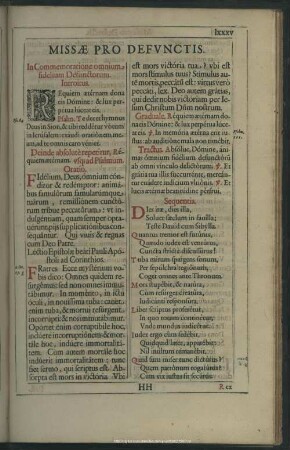 lxxxv
MISSÆ PRO DEFVNCTIS.
In Commemoratione omnium
fidelium Defunctorum.
Introitus.
REquiem æternam dona
eis Dómine: & lux per-
pétua lúceat eis.
Psalm. Te decet hymnus
Deus in Sion, & tibi reddétur votum
ad te omnis caro véniet.
Deinde absolutè repetitur, Ré-
quiem æternam. usq; ad Psalmum.
Oratio.
FIdélium, Deus, ómnium cónditor
& redémptor: animá-
bus famulórum famularúmque
tuárum, remissiónem cunctó-
rum tríbue peccatórum: vt in-
dulgéntiam, quam semper opta-
uérunt, piis supplicatiónibus con-
sequántur. Qui viuis & regnas
cum Deo Patre.
Léctio Epístolæ beáti Pauli Apó-
stoli ad Corínthios.
FRatres. Ecce mystérium vo-
bis dico: Omnes quidem re-
surgémus: sed non omnes immu-
tábimur. In moménto, in ictu
óculi, in nouíssima tuba: canet
enim tuba, & mórtui resurgent
incorrúpti: & nos immutábimur.
Opórtet enim corruptíbile hoc,
indúere incorruptiónem: & mor-
tále hoc, indúere immortalitá-
tem. Cum autem mortále hoc
indúerit immortalitátem: tunc
fiet sermo, qui scriptus est: Ab-
sórpta est mors in victória. Vbi
est mors victória tua? vbi est
mors stímulus tuus? Stímulus au-
tem mortis peccátum est: virtus verò
peccáti, lex. Deo autem grátias,
qui dedit nobis victóriam per Ie-
sum Christum Dñm nostrum.
Graduale. Réquiem ætérnam do-
na eis Dómine: & lux perpétua lúceat eis.
In memória ætérna erit iu-
stus: ab auditióne mala non timébit.
Tractus. Absólue, Dómine, áni-
mas ómnium fidélium defunctórũ
ab omni vínculo delictórum. Et
grátia tua illis succurrénte, mereán-
tur euádere iudícium vltiónis. Et
lucis ætérnæ beatitúdine pérfrui.
Sequentia.
DIes iræ, dies illa,
Soluet sæclum in fauílla:
Teste Dauid cum Sibýlla.
Quantus tremor est futúrus,
Quando iudex est ventúrus,
Cuncta strictè discussúrus!
Tuba mirum spargens sonum,
Per sepúlchra regiónum,
Coget omnes ante thronum.
Mors stupébit, & natúra,
Cum resúrget creatúra,
Iudicánti responsúra.
Liber scriptus proferétur,
In quo totum continétur,
Vnde mundus iudicétur.
Iudex ergo cùm sedébit,
Quidquid latet, apparébit:
Nil inúltum remanébit.
Quid sum miser tunc dictúrus?
Quem patrónum rogatúrus?
Cum vix iustus sit secúrus.
HH
Rex